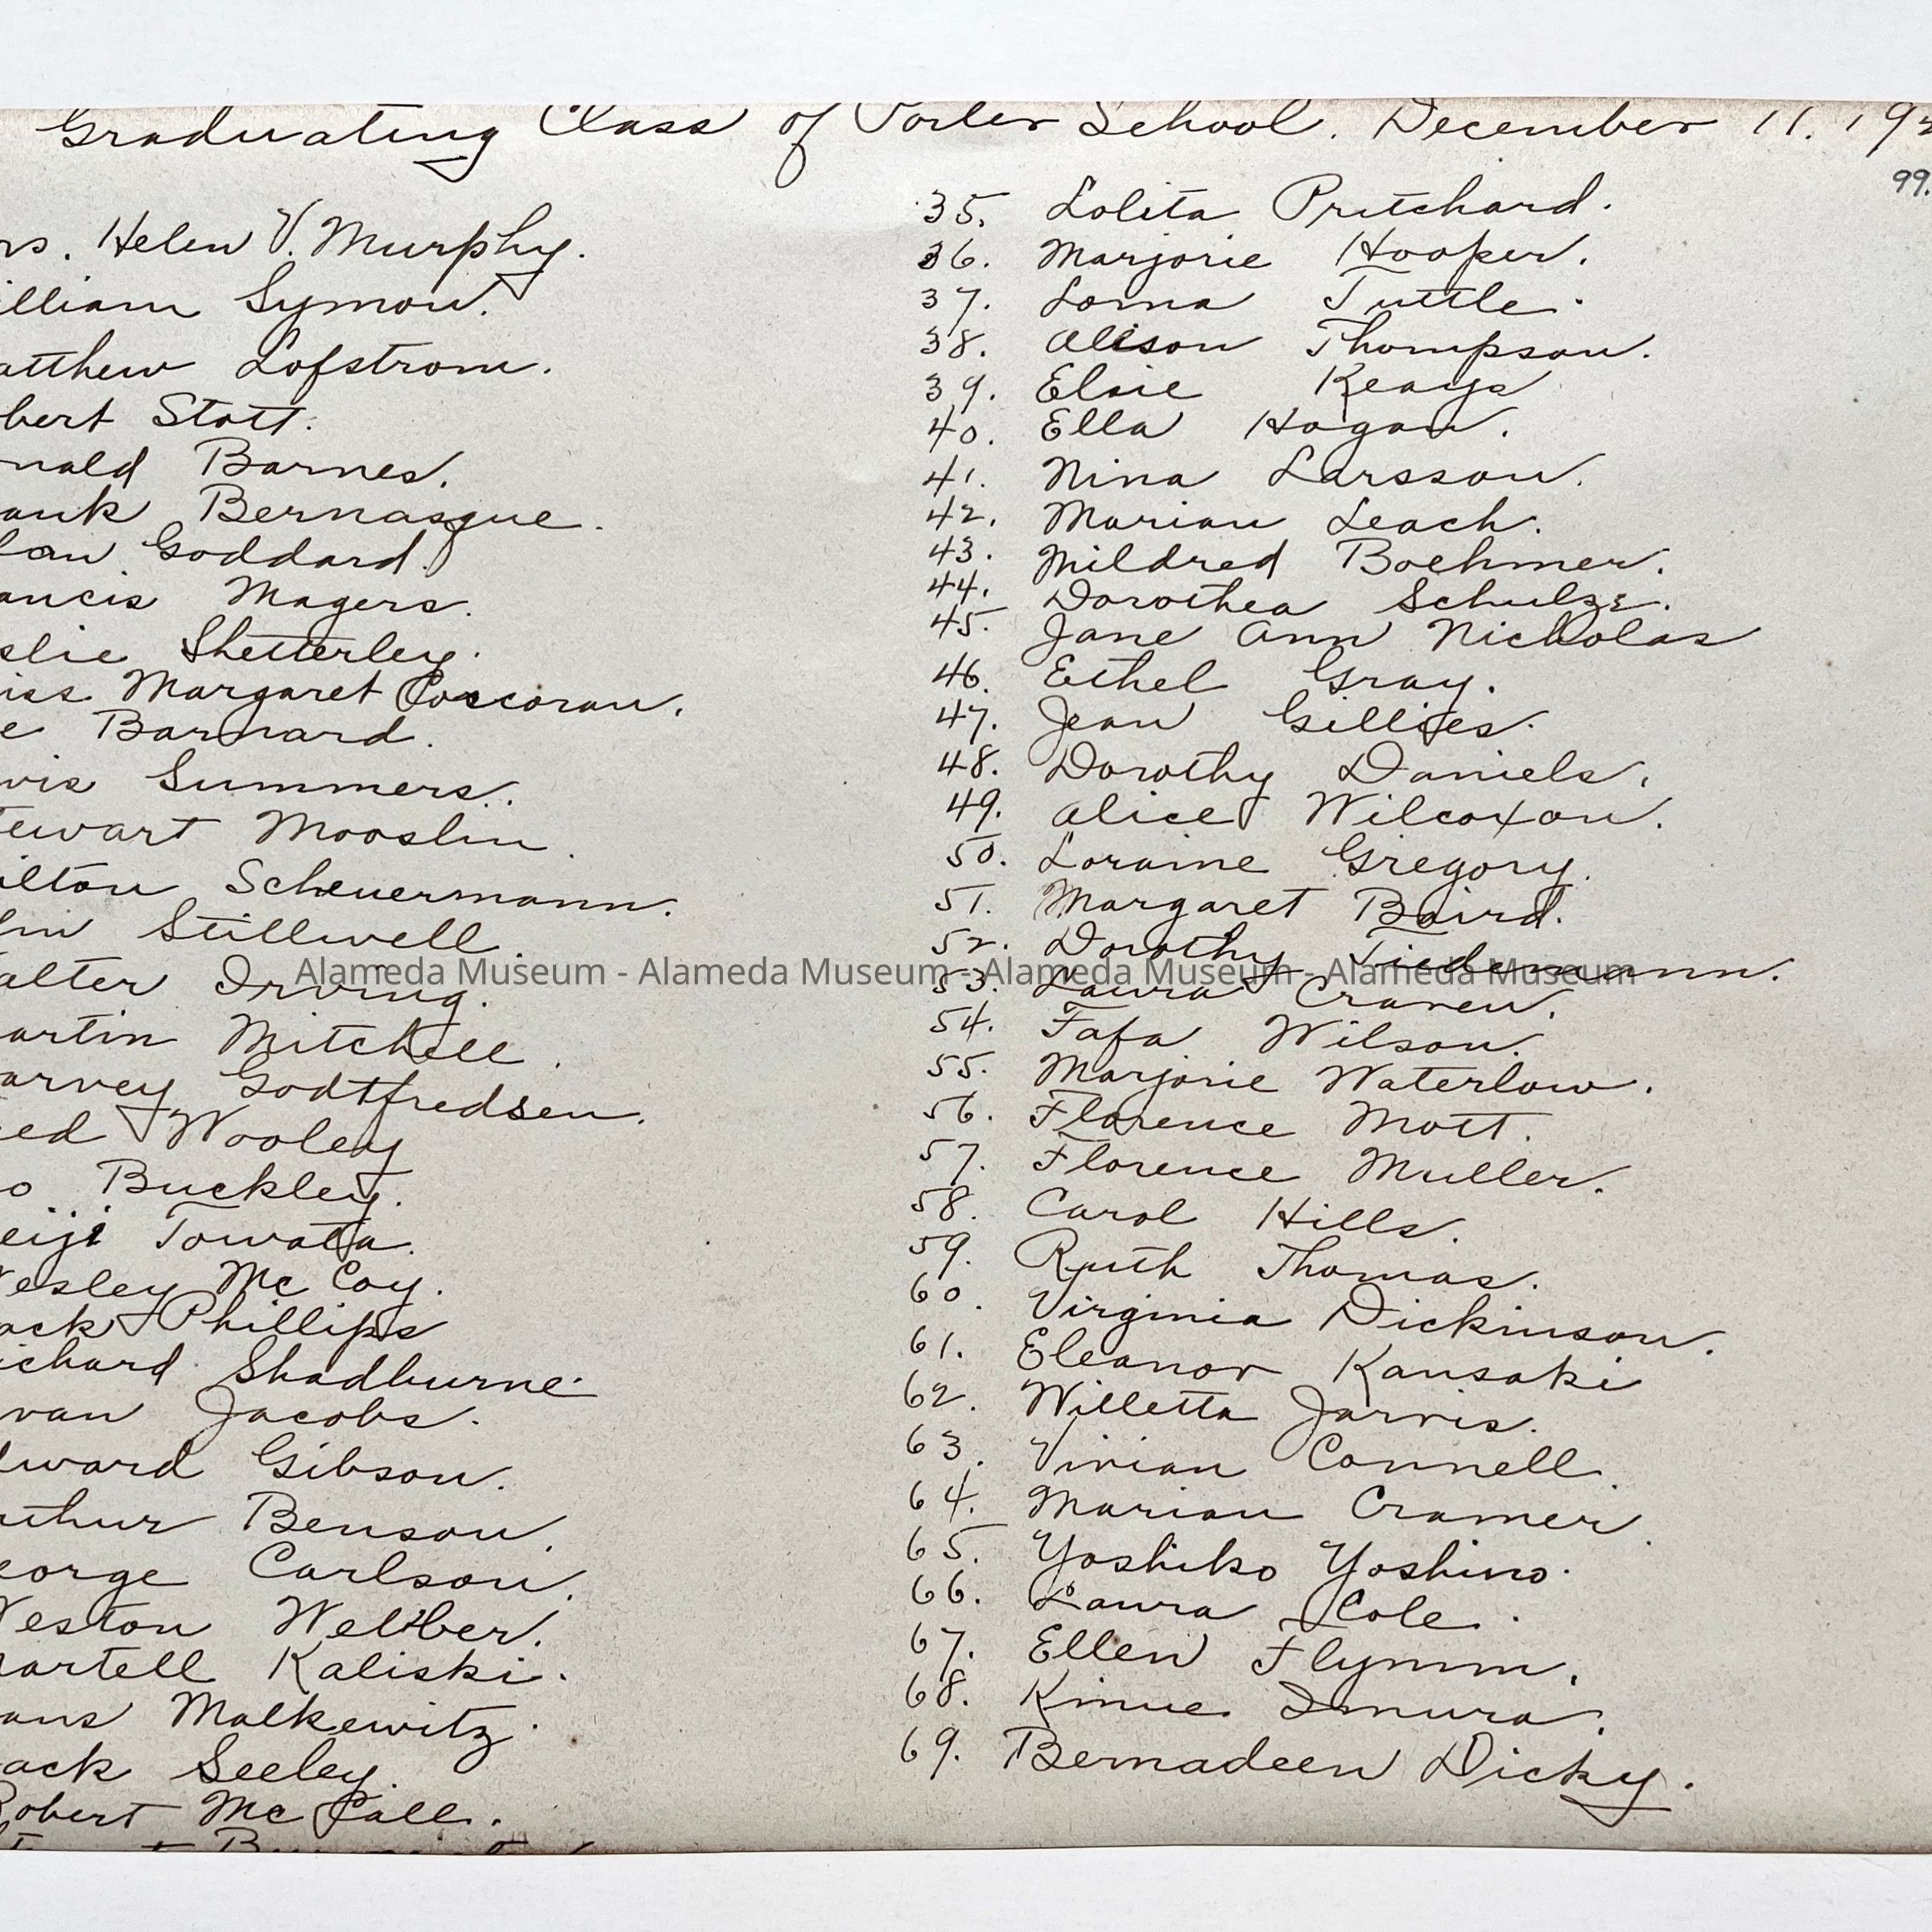 Graduating Class of Porter School. December 11. 19
99.
rs. Helen V. Murphy.
illiam Symon.
atthew Lofstrom.
bert Stott.
nald Barnes.
ank Bernasque.
lan Goddard.
ancis Magers.
slie Shetterley.
iss Margaret Corcoran.
e Barnard.
wis Summers.
tewart Mooslin.
ilton Scheuermann.
lin Stillwell.
alter Irving.
artin Mitchell.
arvey Godtfredsen.
ed Wooley
o Buckley.
eiji Towata.
esley Mc Coy.
ack Phillips
ichard Shadburne.
van Jacobs.
dward Gibson.
rthur Benson.
eorge Carlson.
Weston Welber.
artell Kaliski.
ans Malkewitz.
ack Seeley.
Robert Mc Call.
35. Lolita Pritchard.
36. Marjorie Hooper.
37. Lorna Tuttle.
38. Alison Thompson.
39. Elsie Keays
40. Ella Hogan.
41. Nina Larsson.
42. Marian Leach.
43. Mildred Boehmer.
44. Dorothea Schulze.
45. Jane Ann Nicholas
46. Ethel Gray.
47. Jean Gillies.
48. Dorothy Daniels.
49. Alice Wilcoxon.
50. Loraine Gregory.
51. Margaret Baird.
52. Dorothy Tiedemann.
53. Laura Craven.
54. Fafa Wilson.
55. Marjorie Waterlow.
56. Florence Mott.
57. Florence Muller.
58. Carol Hills.
59. Ruth Thomas.
60. Virginia Dickinson.
61. Eleanor Kansaki
62. Willetta Jarvis.
63. Vivian Connell.
64. Marian Cramer.
65. Yoshiko Yoshino.
66. Laura Cole.
67. Ellen Flynn.
68. Kinue Imura.
69. Bernadeen Dicky.
Alameda Museum - Alameda Museum - Alameda Museum - Alameda Museum